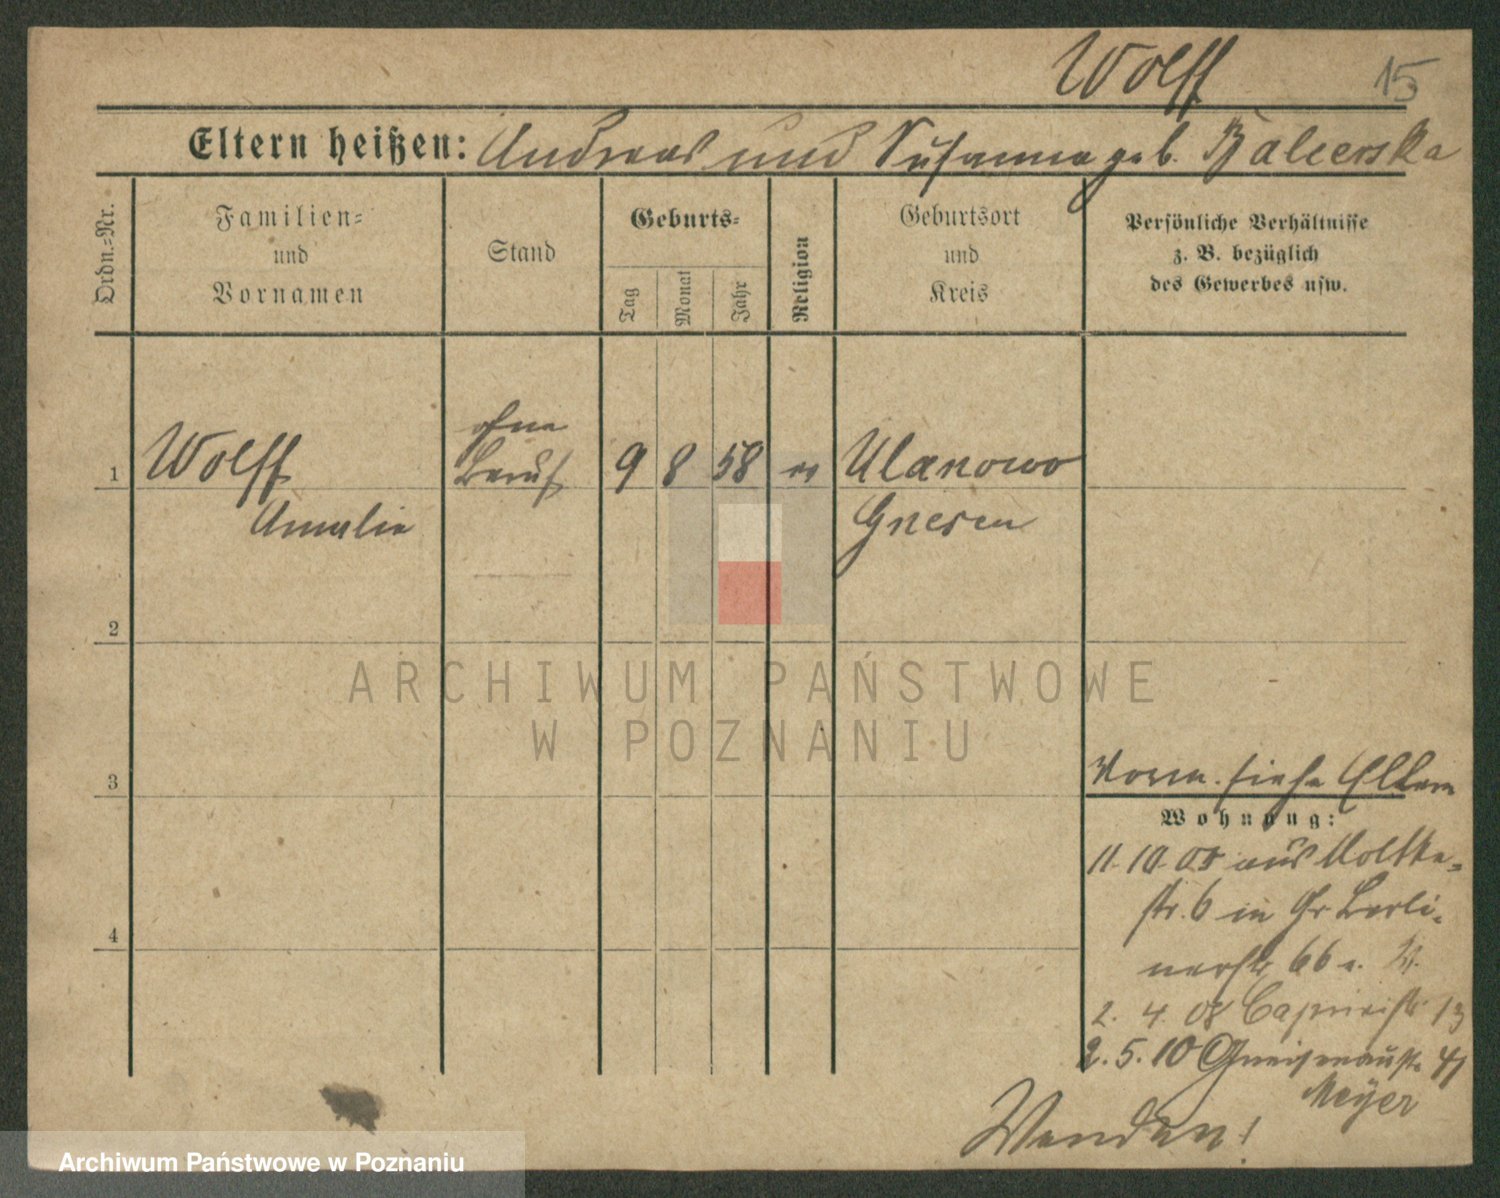 Wolff 15
Eltern heißen: Andreas und Susanna geb. Balcerska
Ordn.=Nr.
Familien=
und
Vornamen
Stand
Geburts=
Tag
Monat
Jahr
Religion
Geburtsort
und
Kreis
Persönliche Verhältnisse
z. B. bezüglich
des Gewerbes usw.
ohne
1 Wolff Beruf 9 8 58 ev Ulanowo
Amalie Gnesen
2
ARCHIWUM PAŃSTWOWE
W POZNANIU
3
Vorm. siehe Eltern
Wohnung:
11. 10. 05 aus Moltke=
str. 6 in Gr Berli=
4
nerstr 66
2. 4. 08 Caprivistr 13
2. 5. 10 Gneisenaustr 41
Meyer
Wenden!
Archiwum Państwowe w Poznaniu